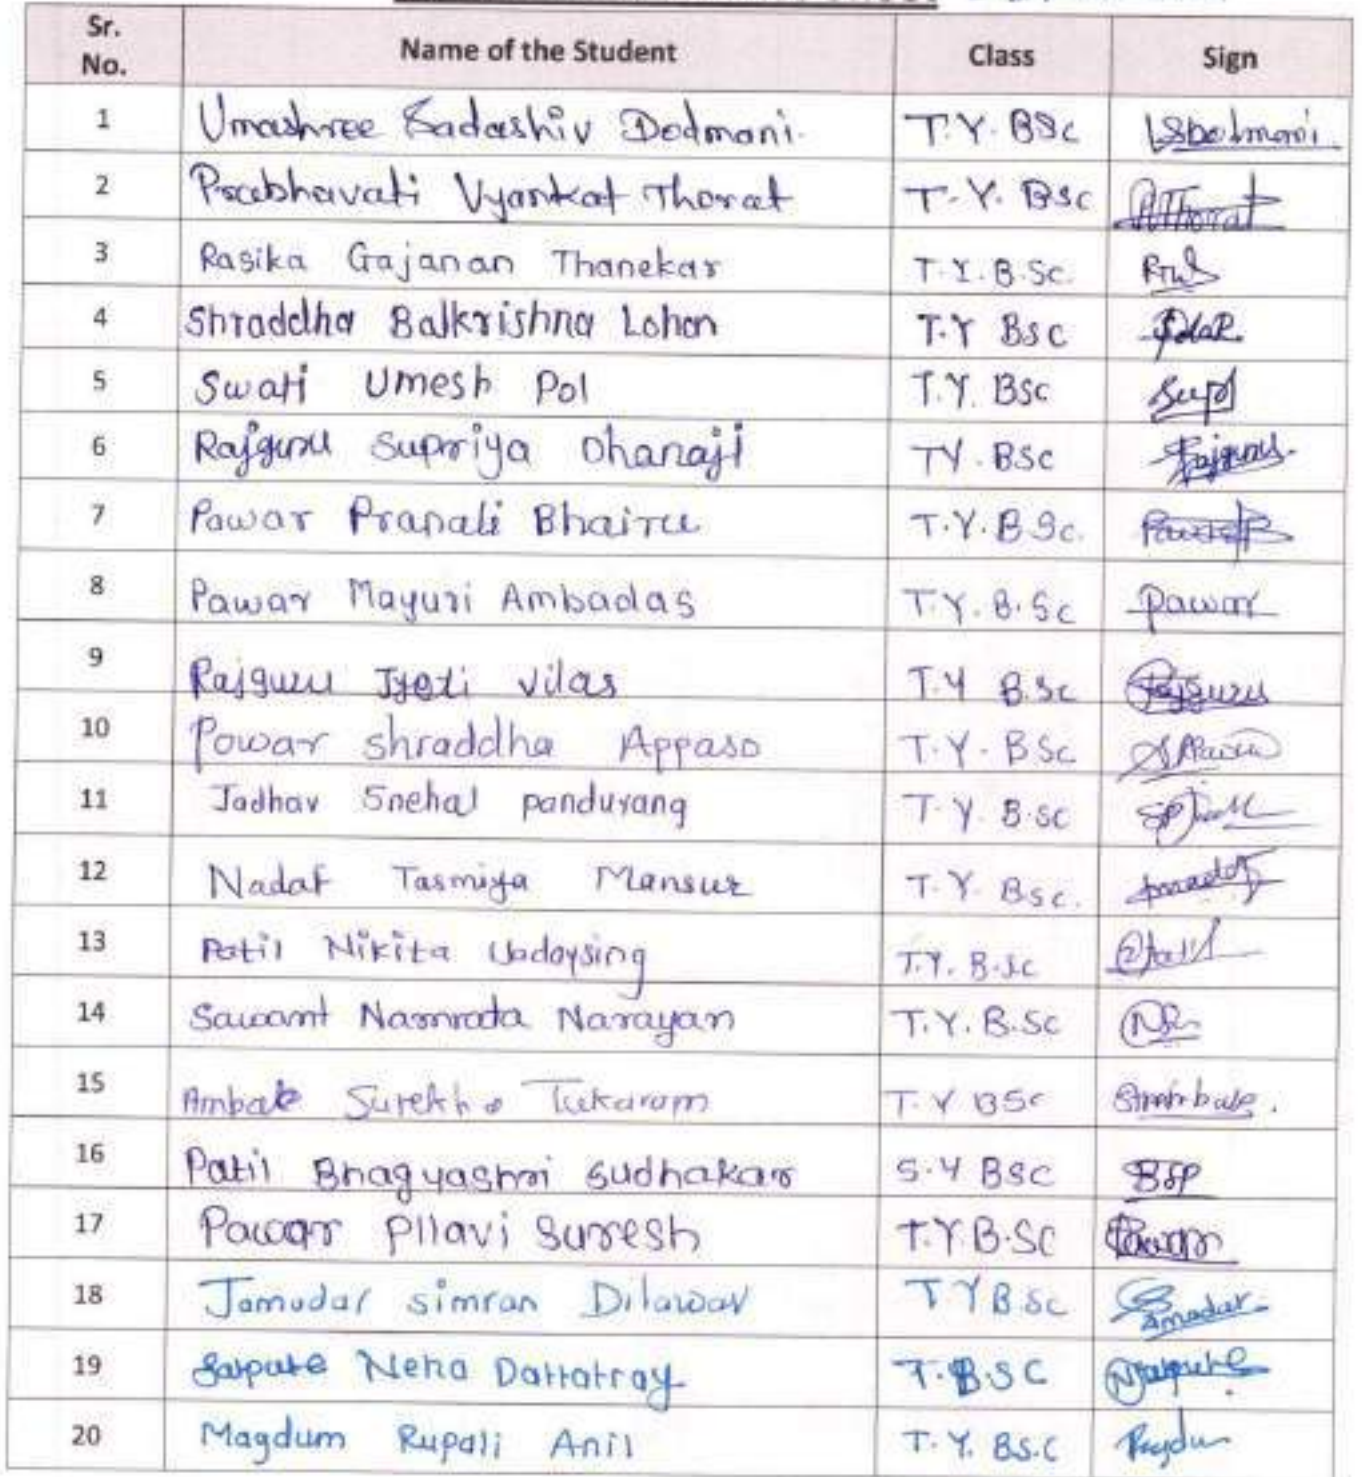 Sr. No. Name of the Student Class Sign
1 Umashree Sadashiv Dodmani. T.Y. BSc
2 Prabhavati Vyankat Thorat T.Y. BSc AThorat
3 Rasika Gajanan Thanekar T.Y.B.Sc.
4 Shraddha Balkrishna Lohar T.Y BSc
5 Swati Umesh Pol T.Y. BSc
6 Rajguru Supriya Dhanaji TY.BSc Rajguru.
7 Pawar Pranali Bhairu T.Y.B.Sc.
8 Pawar Mayuri Ambadas T.Y.B.Sc pawar
9 Rajguru Jyoti Vilas T.Y B.Sc Rajguru
10 Powar shraddha Appaso T.Y.BSc
11 Jadhav Snehal pandurang T.Y. B.sc
12 Nadaf Tasmiya Mansur T.Y. Bsc.
13 Patil Nikita T.Y. B.sc
14 Sawant Namrata Narayan T.Y.B.Sc
15 Ambale Surekha Tukaram T.Y BSc
16 Patil Bhagyashri Sudhakar S.Y BSC BSP
17 Pawar Pllavi Suresh T.Y.B.SC Pawar
18 Jamadar simran Dilawar T Y B.Sc
19 Neha Dattatray T.B.SC
20 Magdum Rupali Anil T.Y. BS.C